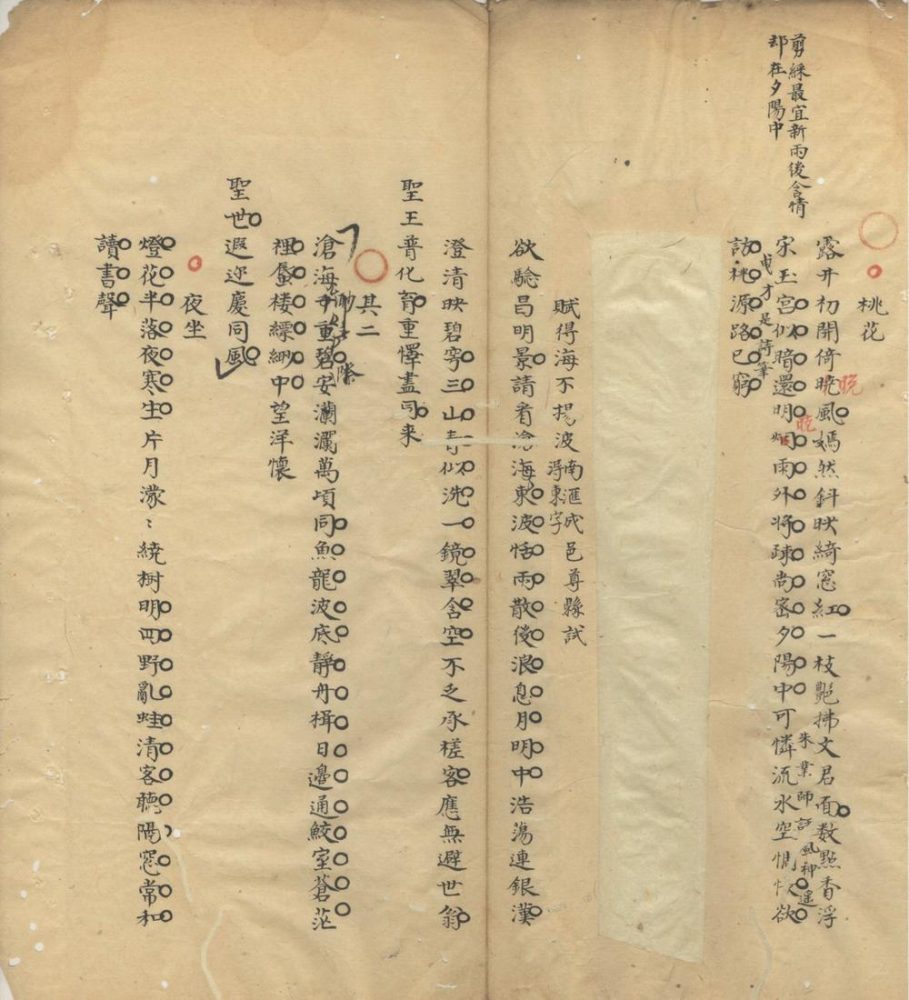 剪綵最宜新雨後含情
却在夕陽中
桃花
露井初開倚曉風嫣然斜映綺窓紅一枝艷拂文君面数點香浮
曉
宋玉宮似暗還明烟雨外將疎尚密夕陽中可憐流水空惆悵欲
曉
朱業師評風神遥
訪桃源路已窮
是倚筆
賦得海不揚波
南滙成邑尊縣試
得東字
欲驗昌明景請看滄海東波恬雨散後浪息月明中浩蕩連銀漢
澄清映碧穹三山青似洗一鏡翠含空不乏承槎客應無避世翁
聖王普化育重懌盡同来
其二
滄海重碧安瀾瀾萬頃同魚龍波底静舟楫日邊通鮫室蒼茫
裡蜃楼縹緲中望洋懷
聖世遐迩慶同風
夜坐
燈花半落夜寒生片月濛〻繞樹明四野亂蛙清客聽隔窓常和
讀書聲